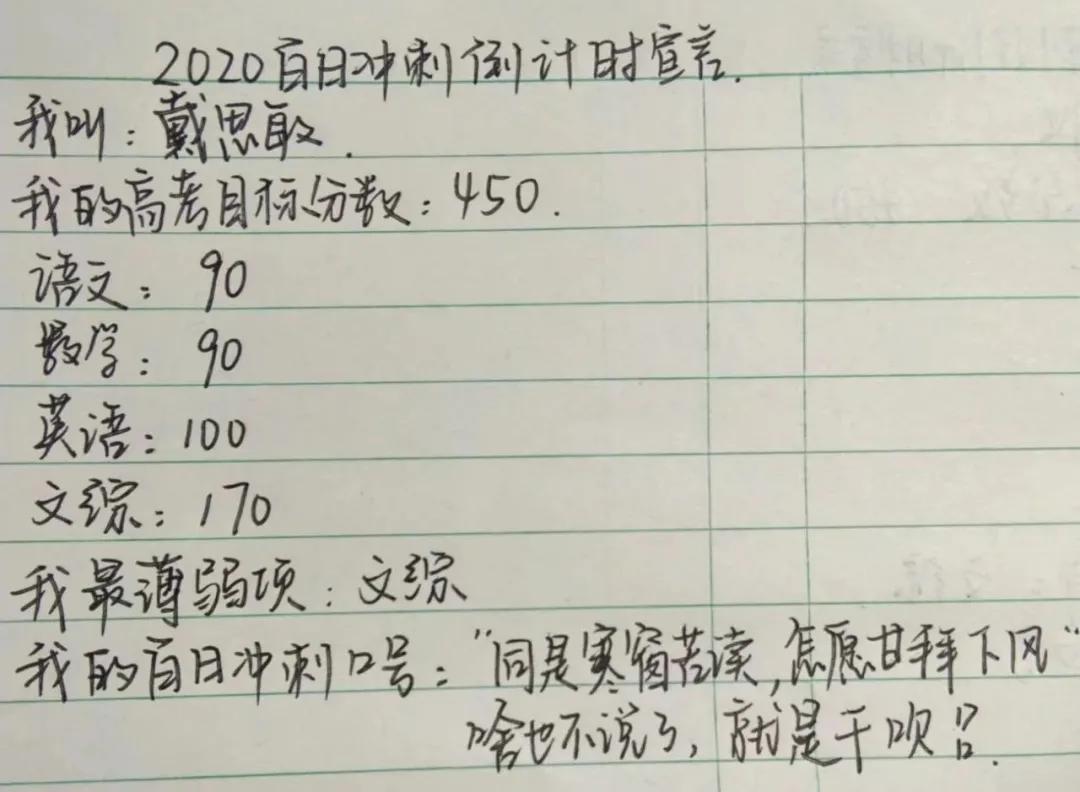 2020百日冲刺倒计时宣言.
我叫：戴思敏.
我的高考目标分数：450.
语文：90
数学：90
英语：100
文综：170
我最薄弱项：文综
我的百日冲刺口号：“同是寒窗苦读，怎愿甘拜下风”
啥也不说了，就是干呗吕.